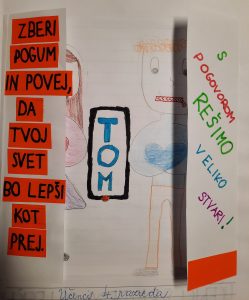 ZBERI
POGUM
IN POVEJ,
DA
TVOJ
SVET
BO LEPŠI
KOT
PREJ.
TOM
S
POGOVOROM
REŠIMO
VELIKO
STVARI!
Učenci 4. razreda